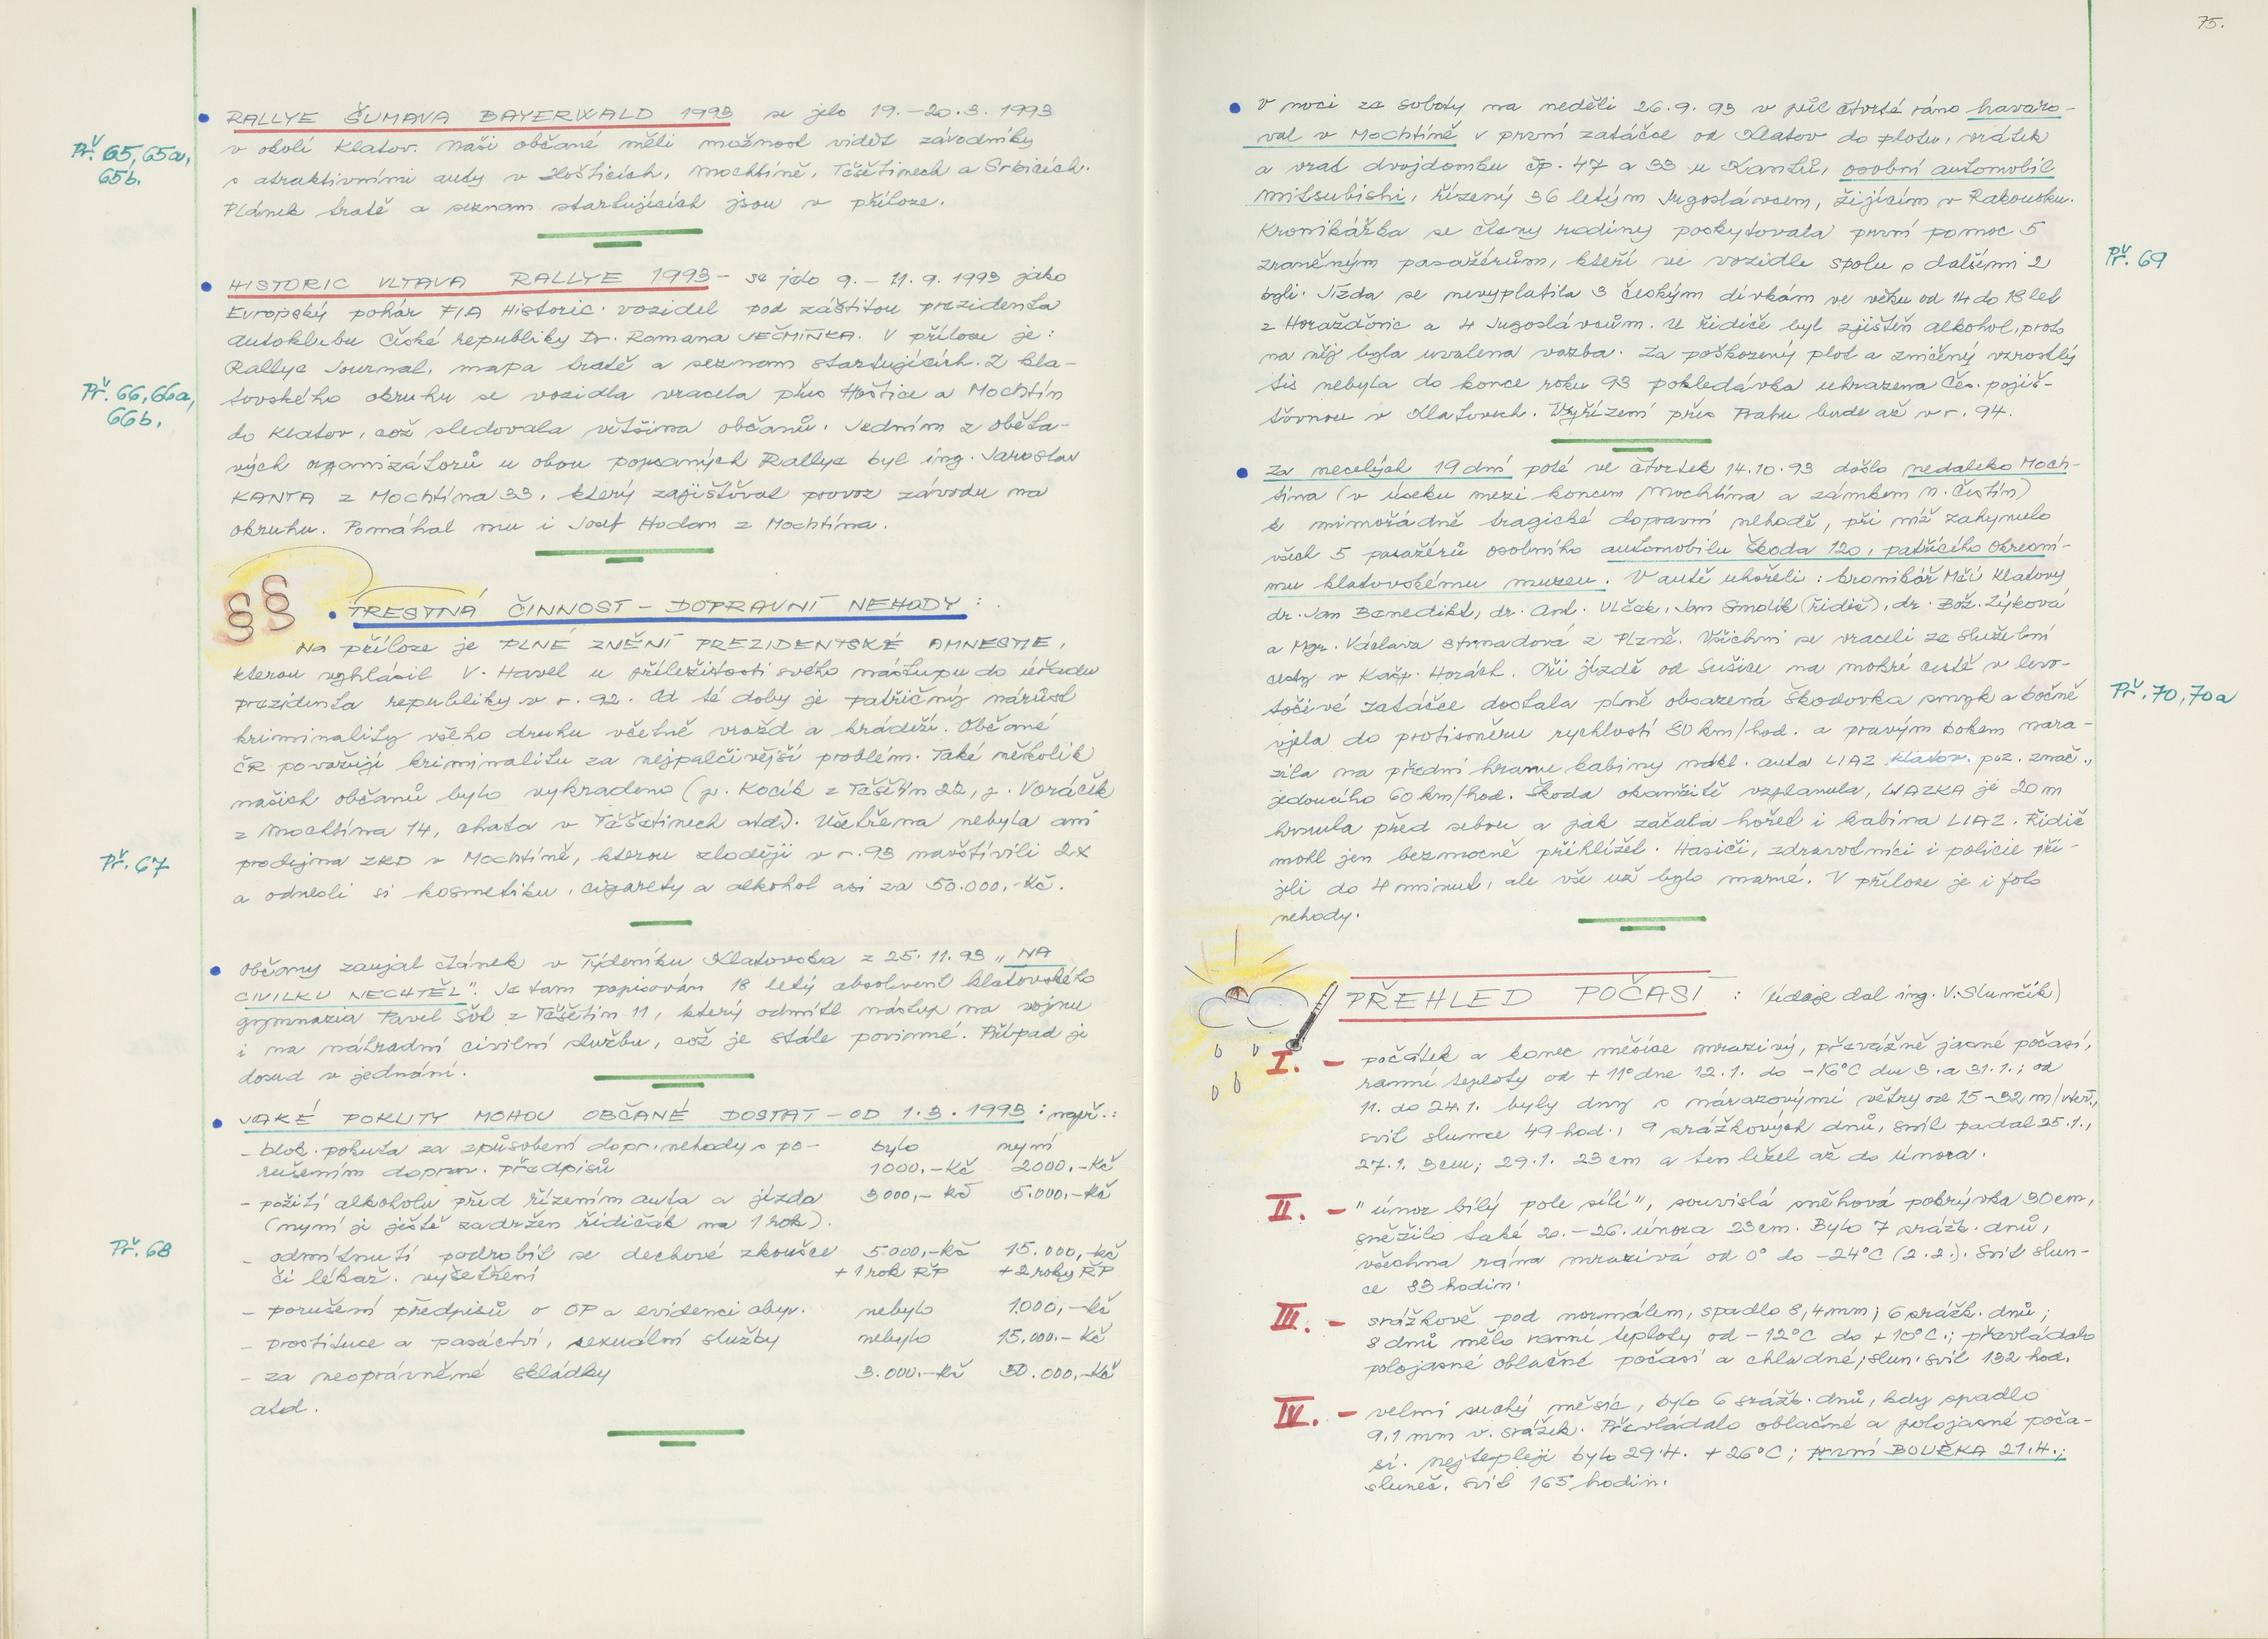 Př. 65, 65a,
65b.
• RALLYE ŠUMAVA BAYERWALD 1993 se jelo 19.-20.3.1993
v okolí Klatov. Naši občané měli možnost vidět závodníky
s atraktivními auty v Hošticích, Mochtíně, Těšětinech a Srbicích.
Plánek tratě a seznam startujících jsou v příloze.
Př. 66, 66a,
66b.
• HISTORIC VLTAVA RALLYE 1993 - se jelo 9.-11.9.1993 jako
Evropský pohár FIA Historic. vozidel pod záštitou prezidenta
Autoklubu České republiky Dr. Romana JEČMÍNKA. V příloze je:
Rallye Journal, mapa tratě a seznam startujících. Z kla-
tovského okruhu se vozidla vracela přes Hoštice a Mochtín
do Klatov, což sledovala většina občanů. Jedním z oběta-
vých organizátorů u obou popsaných Rallye byl ing. Jaroslav
KANTA z Mochtína 33, který zajišťoval provoz závodu na
okruhu. Pomáhal mu i Josef Hodan z Mochtína.
§§
• TRESTNÁ ČINNOST - DOPRAVNÍ NEHODY:
Na příloze je PLNÉ ZNĚNÍ PREZIDENTSKÉ AMNESTIE,
kterou vyhlásil V. Havel u příležitosti svého nástupu do úřadu
prezidenta republiky v r. 92. Od té doby je patřičný nárůst
kriminality všeho druhu včetně vražd a krádeží. Občané
ČR považují kriminalitu za nejpalčivější problém. Také několik
našich občanů bylo vykradeno (p. Kocík z Těšětín 22, p. Voráček
z Mochtína 14, chata v Těšětinech atd). Ušetřena nebyla ani
prodejna ZKD v Mochtíně, kterou zloději v r. 93 navštívili 2x
a odnesli si kosmetiku, cigarety a alkohol asi za 50.000,-Kč.
Př. 67
• Občany zaujal článek v Týdeníku Klatovska z 25.11.93 „NA
CIVILKU NECHTĚL". Je tam popisován 18 letý absolvent klatovského
gymnazia Pavel Šůl z Těšětín 11, který odmítl nástup na vojnu
i na náhradní civilní službu, což je stále povinné. Případ je
dosud v jednání.
• JAKÉ POKUTY MOHOU OBČANÉ DOSTAT - OD 1.3.1993: např.:
- blok. pokuta za způsobení dopr. nehody s po- bylo nyní
rušením doprav. předpisů 1000,-Kč 2000,-Kč
- požití alkoholu před řízením auta a jízda 3000,-Kč 5.000,-Kč
(nyní je ještě zadržen řidičák na 1 rok).
Př. 68
- odmítnutí podrobit se dechové zkoušce 5.000,-Kč 15.000,-Kč
či lékař. vyšetření +1 rok ŘP +2 roky ŘP
- porušení předpisů o OP a evidenci obyv. nebylo 1.000,-Kč
- prostituce a pasáctví, sexuální služby nebylo 15.000.-Kč
- za neoprávněné skládky 3.000.-Kč 50.000,-Kč
atd.
75.
• V noci ze soboty na neděli 26.9.93 v půl čtvrté ráno havaro-
val v Mochtíně v první zatáčce od Klatov do plotu, vrátek
a vrat dvojdomku čp. 47 a 33 u Kantů, osobní automobil
Mitsubishi, řízený 36 letým Jugoslávcem, žijícím v Rakousku.
Kronikářka se členy rodiny poskytovala první pomoc 5
zraněným pasažérům, kteří ve vozidle spolu s dalšími 2
byli. Jízda se nevyplatila 3 českým dívkám ve věku od 14 do 18 let
z Horažďovic a 4 Jugoslávcům. U řidiče byl zjištěn alkohol, proto
na něj byla uvalena vazba. Za poškozený plot a zničený vzrostlý
tis nebyla do konce roku 93 pohledávka uhrazena Čes. pojiš-
ťovnou v Klatovech. Vyřízení přes Prahu bude až v r. 94.
Př. 69
• Za necelých 19 dní poté ve čtvrtek 14.10.93 došlo nedaleko Moch-
tína (v úseku mezi koncem Mochtína a zámkem N. Čestín)
k mimořádně tragické dopravní nehodě, při níž zahynulo
všech 5 pasažérů osobního automobilu Škoda 120, patřícího Okresní-
mu klatovskému muzeu. V autě uhořeli: kronikář Měú Klatovy
dr. Jan Benedikt, dr. Ant. Vlček, Jan Smolík (řidič), dr. Bož. Zýková
a Mgr. Václava Strnadová z Plzně. Všichni se vraceli ze služební
cesty v Kašp. Horách. Při jízdě od Sušice na mokré cestě v levo-
točivé zatáčce dostala plně obsazená Škodovka smyk a bočně
vjela do protisměru rychlostí 80 km/hod. a pravým bokem nara-
zila na přední hranu kabiny nákl. auta LIAZ klatov. poz. znač.,
jedoucího 60 km/hod. Škoda okamžitě vzplanula, LIAZKA je 20 m
hrnula před sebou a pak začala hořet i kabina LIAZ. Řidič
mohl jen bezmocně přihlížet. Hasiči, zdravotníci i policie při-
jeli do 4 minut, ale vše už bylo marné. V příloze je i foto
nehody.
Př. 70, 70a
PŘEHLED POČASÍ: (údaje dal ing. V. Slunčík)
I. - počátek a konec měsíce mrazivý, převážně jasné počasí,
ranní teploty od +11° dne 12.1. do -16°C dne 3. a 31.1.; od
11. do 24.1. byly dny s nárazovými větry od 15-32 m/vteř.,
svit slunce 49 hod., 9 srážkových dnů, sníh padal 25.1.,
27.1. 3cm; 29.1. 23 cm a ten ležel až do února.
II. - "únor bílý pole sílí", souvislá sněhová pokrývka 30cm,
sněžilo také 20.-26. února 23cm. Bylo 7 srážk. dnů,
všechna rána mrazivá od 0° do -24°C (2.2.). Svit slun-
ce 83 hodin.
III. - srážkově pod normálem, spadlo 8,4mm; 6 srážk. dnů;
8 dnů mělo ranní teploty od -12°C do +10°C.; převládalo
polojasné oblačné počasí a chladné; slun. svit 132 hod.
IV. - velmi suchý měsíc, bylo 6 srážk. dnů, kdy spadlo
9,1 mm v. srážek. Převládalo oblačné a polojasné poča-
sí. nejtepleji bylo 29.4. +26°C; první BOUŘKA 21.4.;
sluneč. svit 165 hodin.